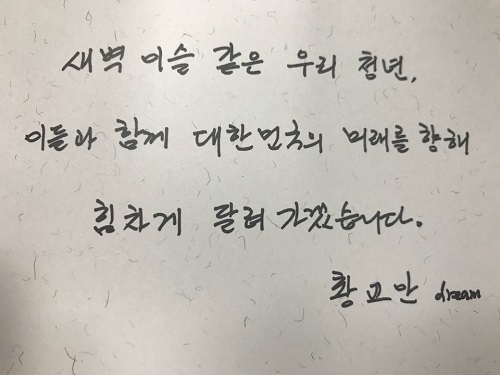 새벽 이슬 같은 우리 청년,
이들과 함께 대한민국의 미래를 향해
힘차게 달려 가겠습니다.
황교안 dream